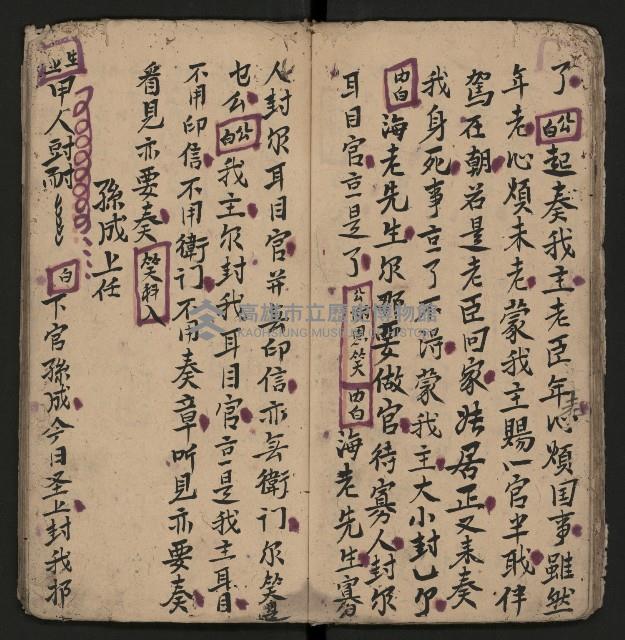 了公白起奏我主老臣年心煩国事雖然
年老心煩未老蒙我主賜一官半职伴
駕在朝若是老臣回家居正又来奏
我身死事亦了不得蒙我主大小封乜尔
内白海老先生尔那要做官待寡人封尔
耳目官亦是了笑内白海老先生寡
人封尔耳目官并無印信亦無衛门尔笑
乜么公白我主尔封我耳目官亦是我主耳目
不用印信不用衛门不用奏章听見亦要奏
看見亦要奏笑科入
孫成上任
生上甲人討耐白下官孫成今日圣上封我
高雄市立歷史博物館
KAOHSIUNG MUSEUM OF HISTORY